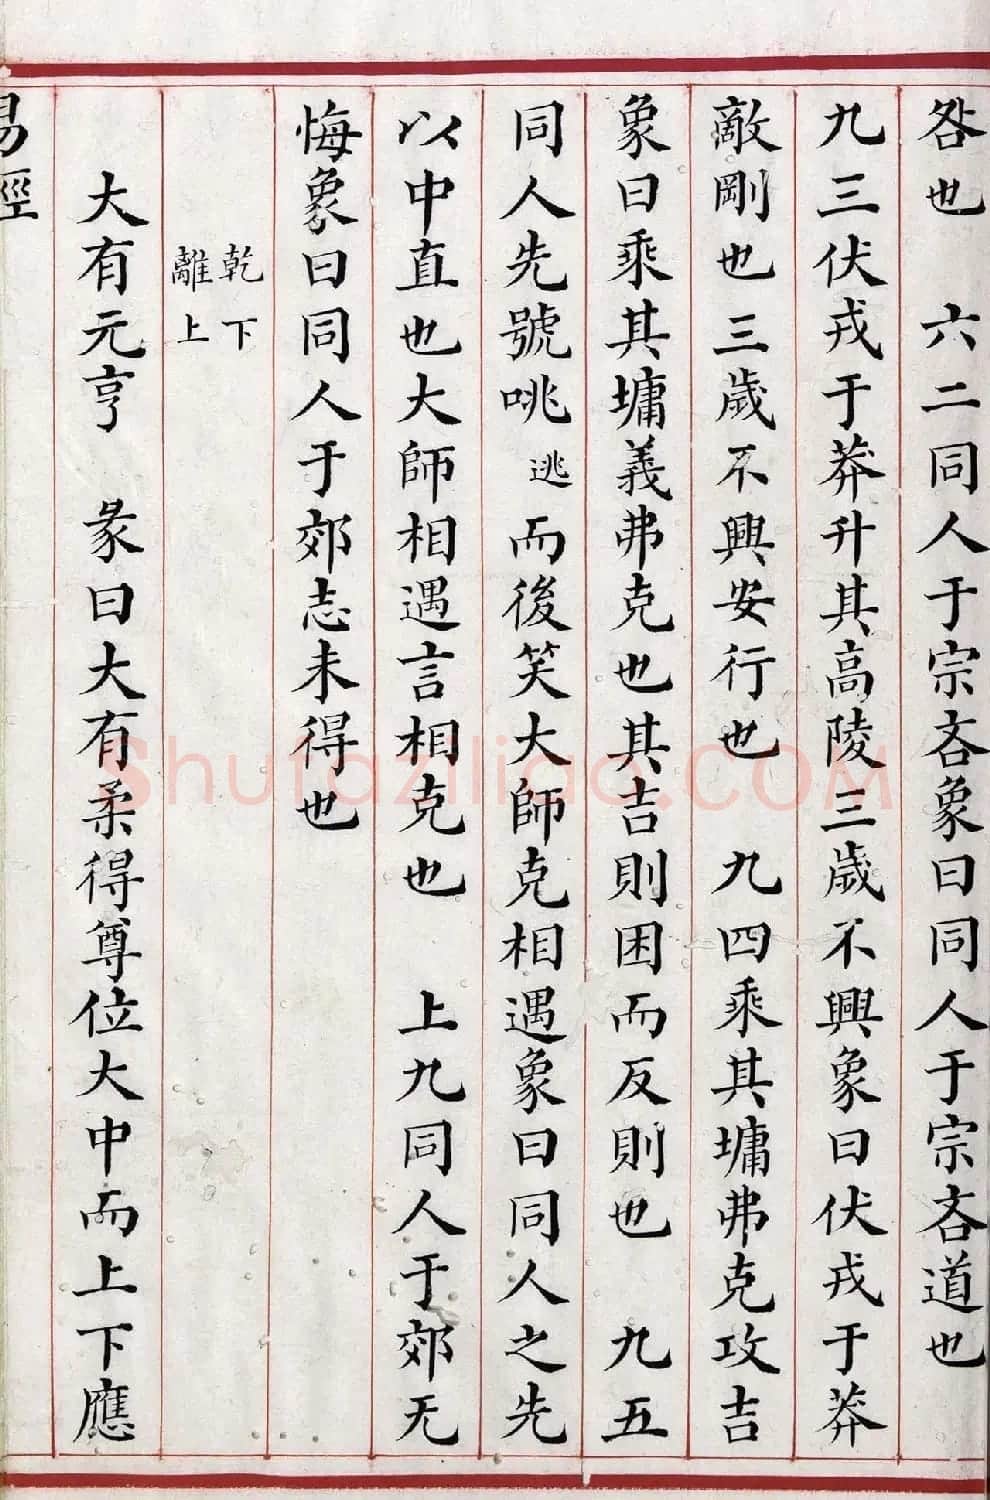 咎也　六二同人于宗吝象曰同人于宗吝道也
九三伏戎于莽升其高陵三歲不興象曰伏戎于莽
敵剛也三歲不興安行也　九四乘其墉弗克攻吉
象曰乘其墉義弗克也其吉則困而反則也　九五
同人先號咷逃而後笑大師克相遇象曰同人之先
以中直也大師相遇言相克也　上九同人于郊无
悔象曰同人于郊志未得也
乾下
離上
大有元亨　彖曰大有柔得尊位大中而上下應
易經
Shufaziliao.COM